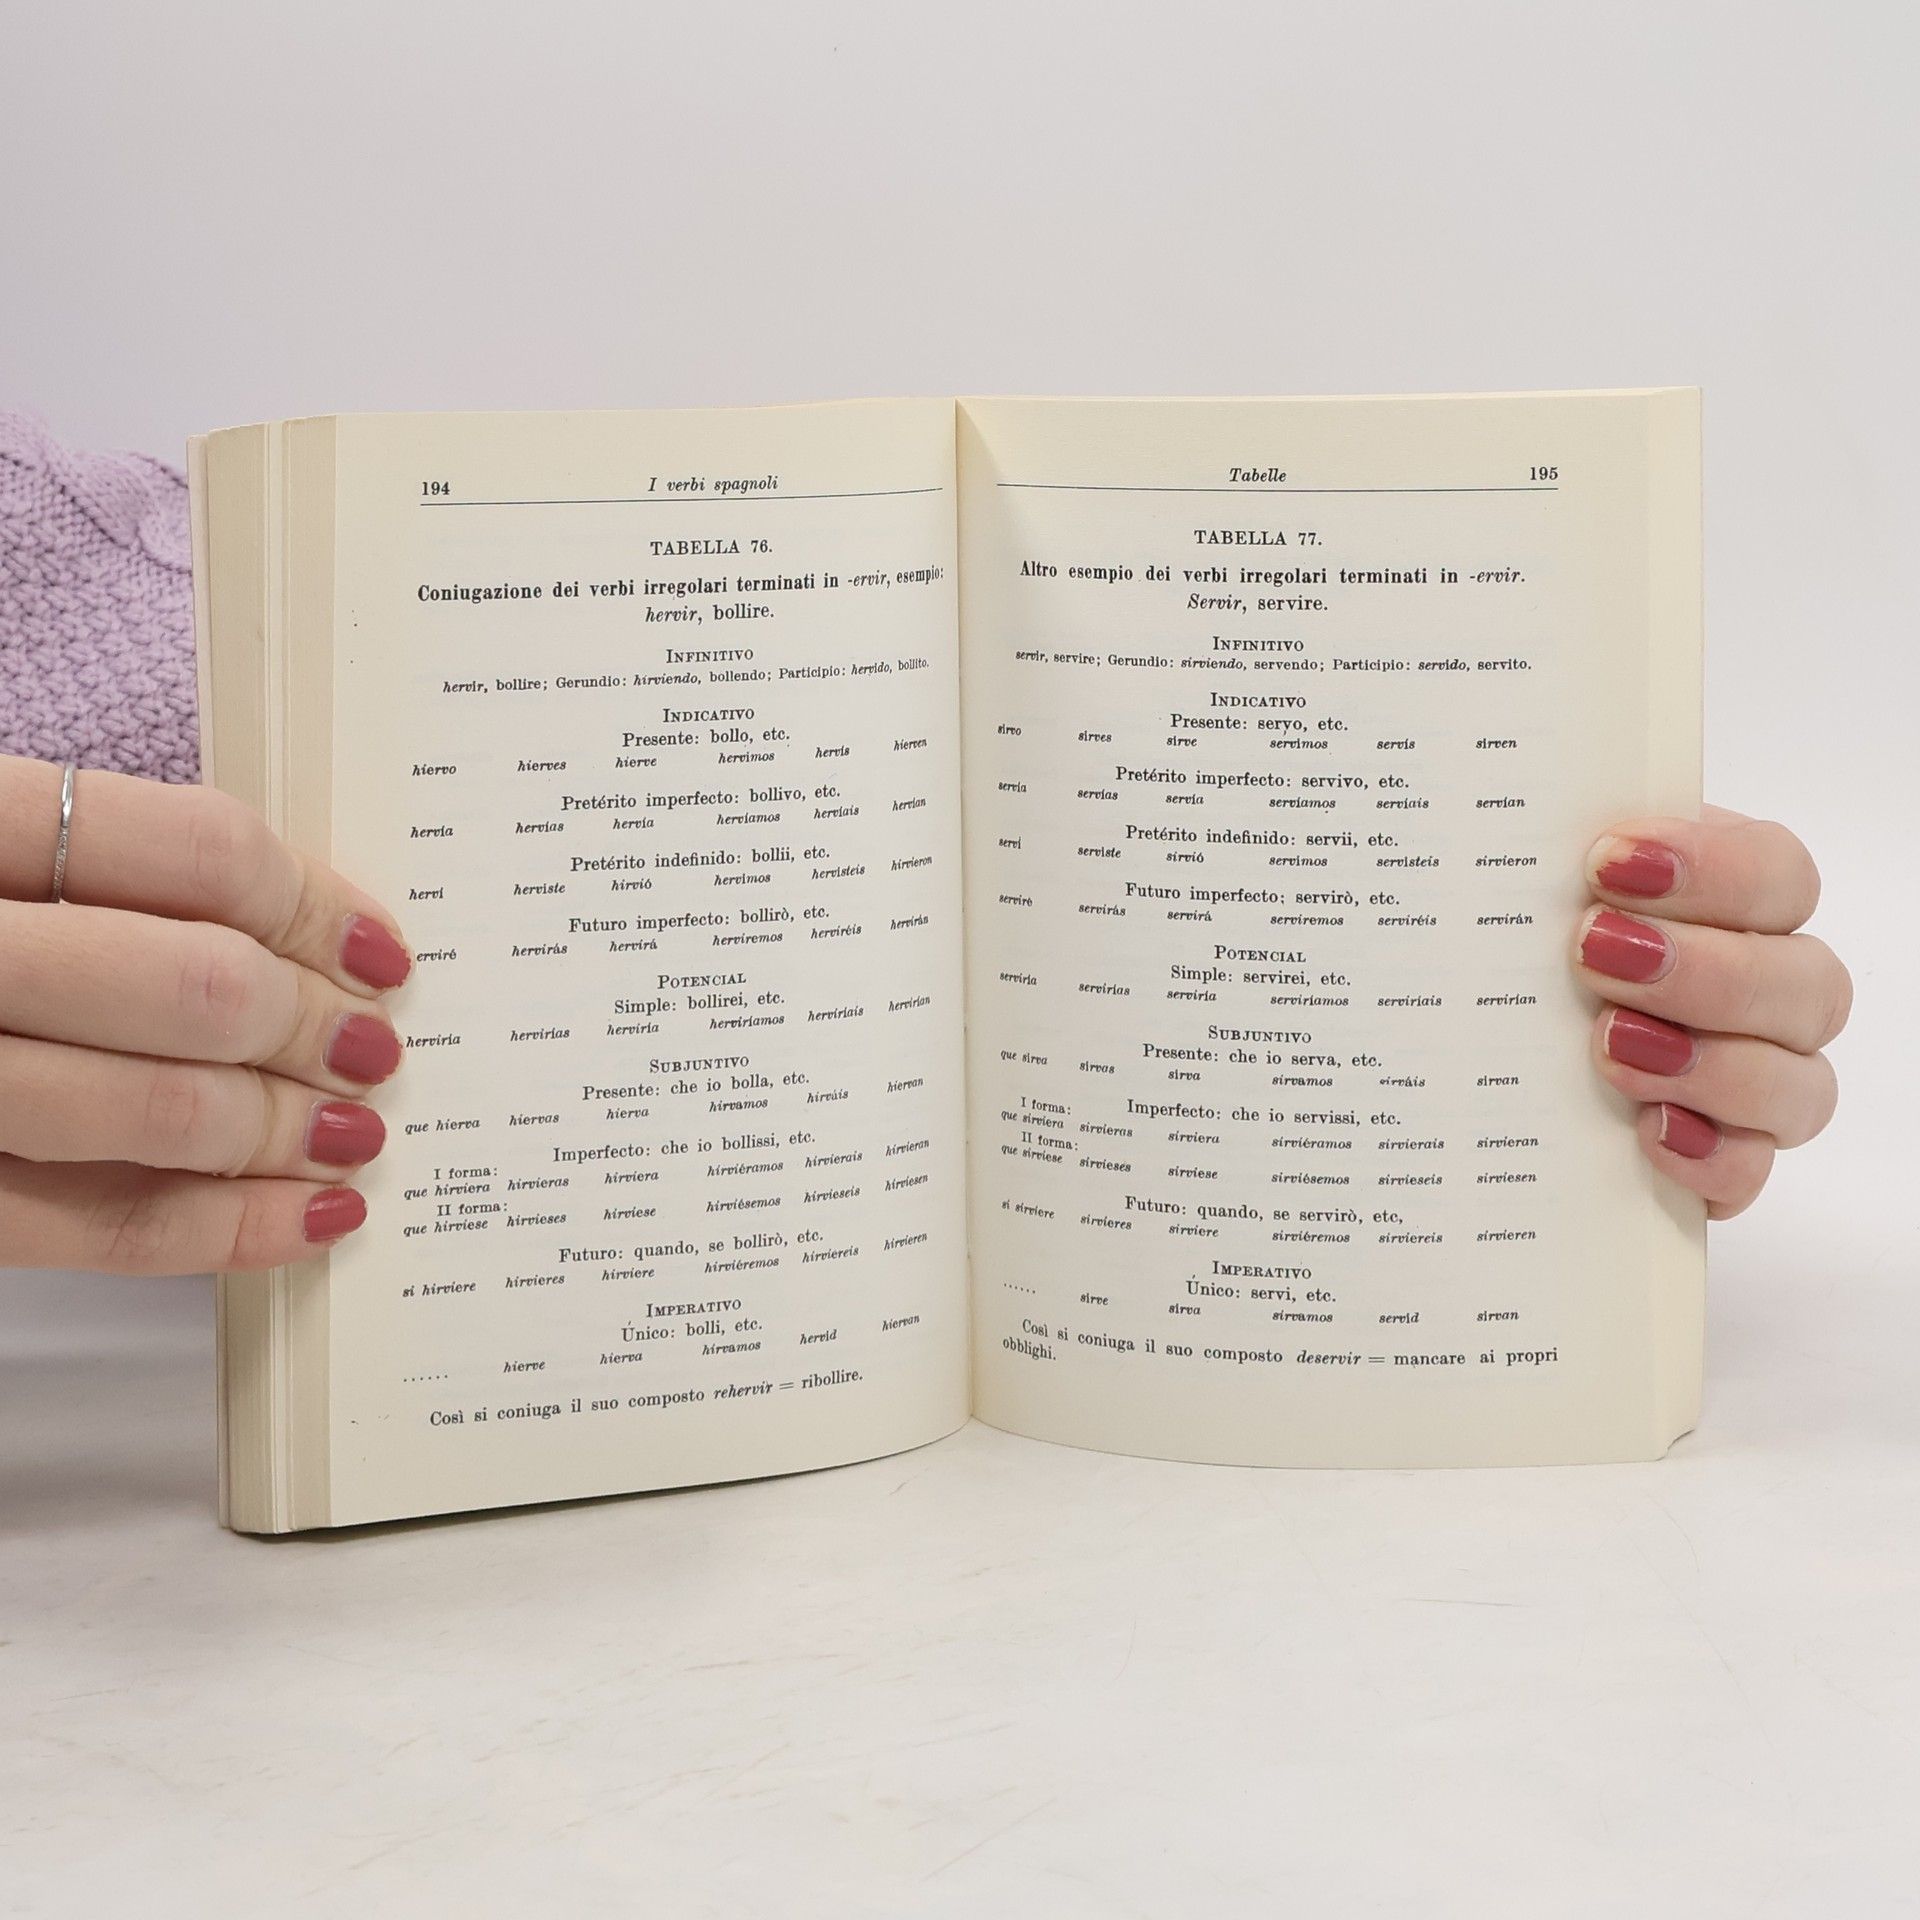 194 I verbi spagnoli
TABELLA 76.
Coniugazione dei verbi irregolari terminati in -ervir, esempio:
hervir, bollire.
INFINITIVO
hervir, bollire; Gerundio: hirviendo, bollendo; Participio: hervido, bollito.
INDICATIVO
Presente: bollo, etc.
hiervo hierves hierve hervimos hervís hierven
Pretérito imperfecto: bollivo, etc.
hervía hervías hervía hervíamos hervíais hervían
Pretérito indefinido: bollii, etc.
herví herviste hirvió hervimos hervisteis hirvieron
Futuro imperfecto: bollirò, etc.
erviré hervirás hervirá herviremos herviréis hervirán
POTENCIAL
Simple: bollirei, etc.
herviría hervirías herviría herviríamos herviríais hervirían
SUBJUNTIVO
Presente: che io bolla, etc.
que hierva hiervas hierva hirvamos hirváis hiervan
Imperfecto: che io bollissi, etc.
I forma:
que hirviera hirvieras hirviera hirviéramos hirvierais hirvieran
II forma:
que hirviese hirvieses hirviese hirviésemos hirvieseis hirviesen
Futuro: quando, se bollirò, etc.
si hirviere hirvieres hirviere hirviéremos hirviereis hirvieren
IMPERATIVO
Único: bolli, etc.
...... hierve hierva hirvamos hervid hiervan
Così si coniuga il suo composto rehervir = ribollire.
Tabelle 195
TABELLA 77.
Altro esempio dei verbi irregolari terminati in -ervir.
Servir, servire.
INFINITIVO
servir, servire; Gerundio: sirviendo, servendo; Participio: servido, servito.
INDICATIVO
Presente: servo, etc.
sirvo sirves sirve servimos servís sirven
Pretérito imperfecto: servivo, etc.
servía servías servía servíamos servíais servían
Pretérito indefinido: servii, etc.
serví serviste sirvió servimos servisteis sirvieron
Futuro imperfecto: servirò, etc.
serviré servirás servirá serviremos serviréis servirán
POTENCIAL
Simple: servirei, etc.
serviría servirías serviría serviríamos serviríais servirían
SUBJUNTIVO
Presente: che io serva, etc.
que sirva sirvas sirva sirvamos sirváis sirvan
Imperfecto: che io servissi, etc.
I forma:
que sirviera sirvieras sirviera sirviéramos sirvierais sirvieran
II forma:
que sirviese sirvieses sirviese sirviésemos sirvieseis sirviesen
Futuro: quando, se servirò, etc,
si sirviere sirvieres sirviere sirviéremos sirviereis sirvieren
IMPERATIVO
Único: servi, etc.
...... sirve sirva sirvamos servid sirvan
Così si coniuga il suo composto deservir = mancare ai propri
obblighi.